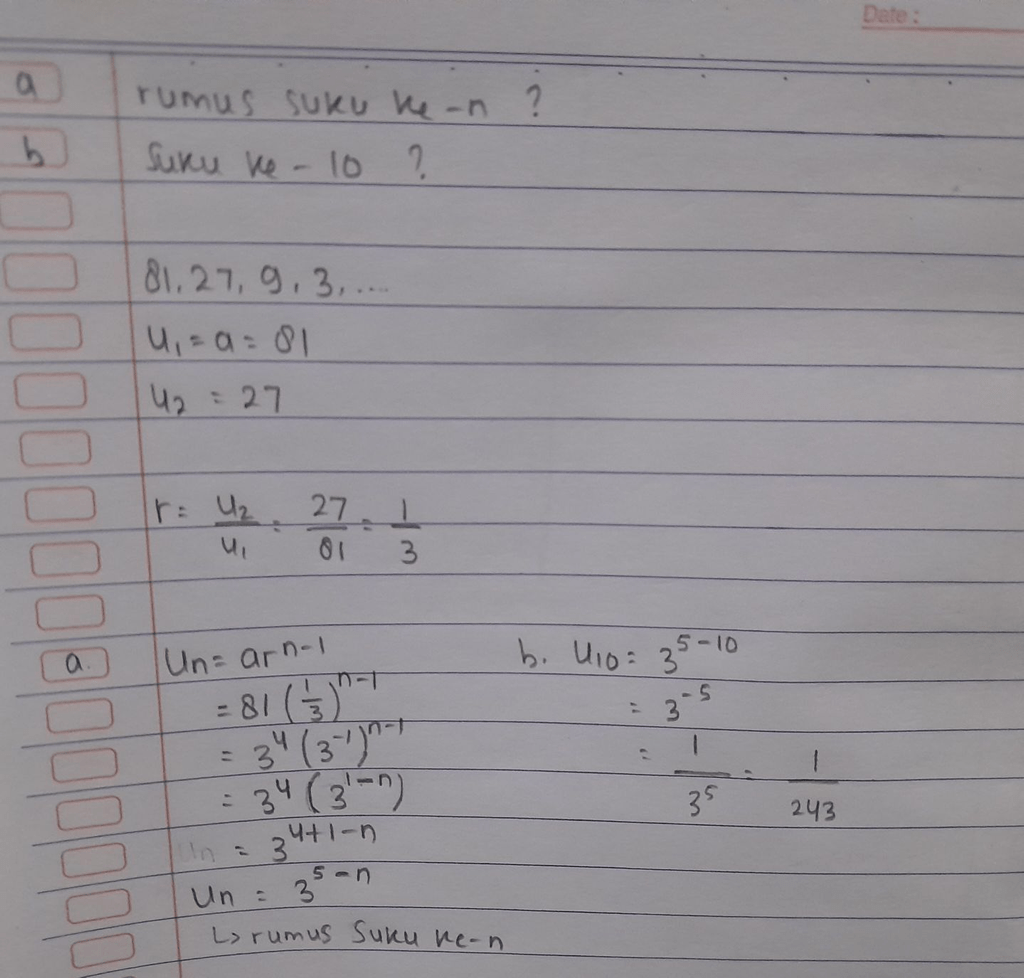 Date:
a rumus suku ke-n ?
b Suku ke - 10 ?
81, 27, 9, 3, ....
U₁ = a = 81
U₂ = 27
r = U₂/U₁ = 27/81 = 1/3
a. Un = arⁿ⁻¹
= 81 (1/3)ⁿ⁻¹
= 3⁴ (3⁻¹)ⁿ⁻¹
= 3⁴ (3¹⁻ⁿ)
Un = 3⁴⁺¹⁻ⁿ
Un = 3⁵⁻ⁿ
↳ rumus Suku ke-n
b. U₁₀ = 3⁵⁻¹⁰
= 3⁻⁵
= 1/3⁵ = 1/243